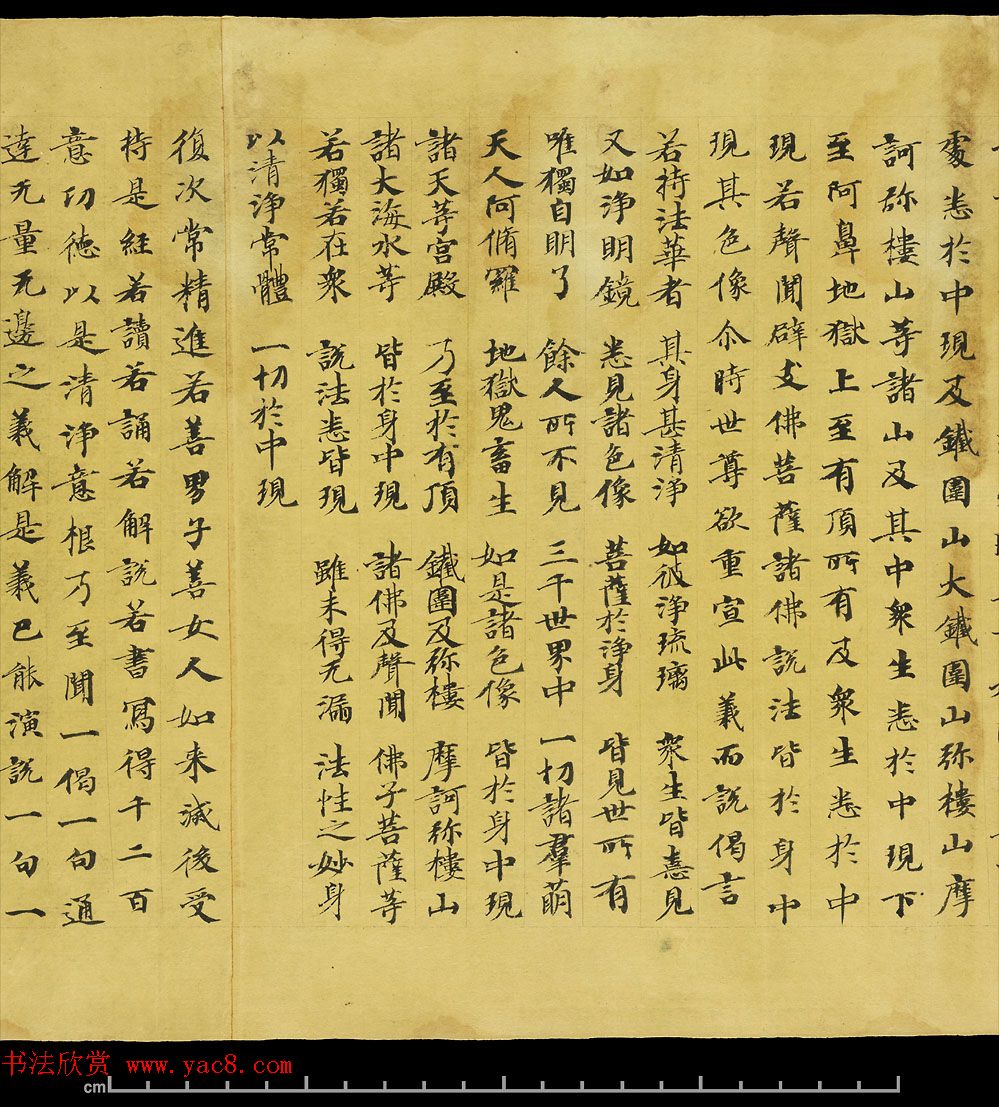 處悉於中現及鐵圍山大鐵圍山弥樓山摩
訶弥樓山等諸山及其中衆生悉於中現下
至阿鼻地獄上至有頂所有及衆生悉於中
現若聲聞辟支佛菩薩諸佛說法皆於身中
現其色像尒時世尊欲重宣此義而說偈言
若持法華者 其身甚清淨 如彼淨琉璃 衆生皆憙見
又如淨明鏡 悉見諸色像 菩薩於淨身 皆見世所有
唯獨自明了 餘人所不見 三千世界中 一切諸羣萌
天人阿脩羅 地獄鬼畜生 如是諸色像 皆於身中現
諸天等宮殿 乃至於有頂 鐵圍及弥樓 摩訶弥樓山
諸大海水等 皆於身中現 諸佛及聲聞 佛子菩薩等
若獨若在衆 說法悉皆現 雖未得无漏 法性之妙身
以清淨常體 一切於中現
復次常精進若善男子善女人如来滅後受
持是經若讀若誦若解說若書寫得千二百
意功德以是清淨意根乃至聞一偈一句通
達无量无邊之義解是義已能演說一句一
书法欣赏 www.yac8.com
cm